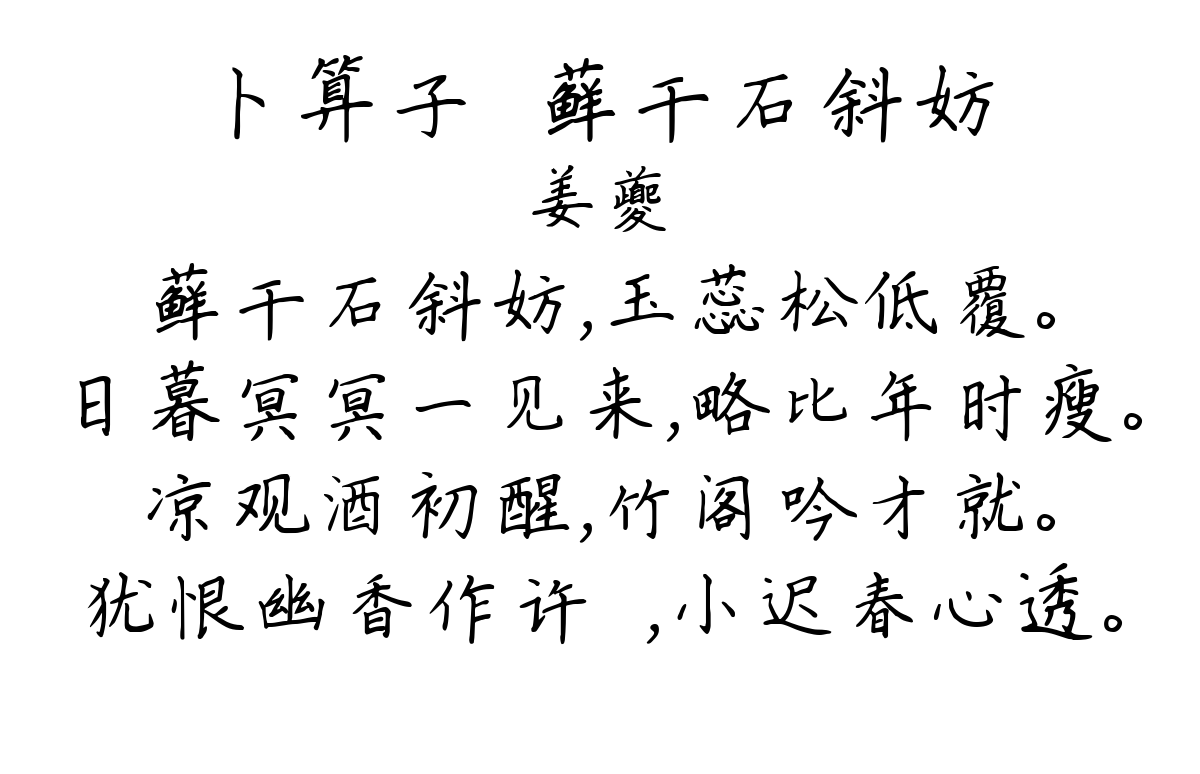 卜算子 藓干石斜妨
姜夔
藓干石斜妨,玉蕊松低覆。
日暮冥冥一见来,略比年时瘦。
凉观酒初醒,竹阁吟才就。
犹恨幽香作许 ,小迟春心透。